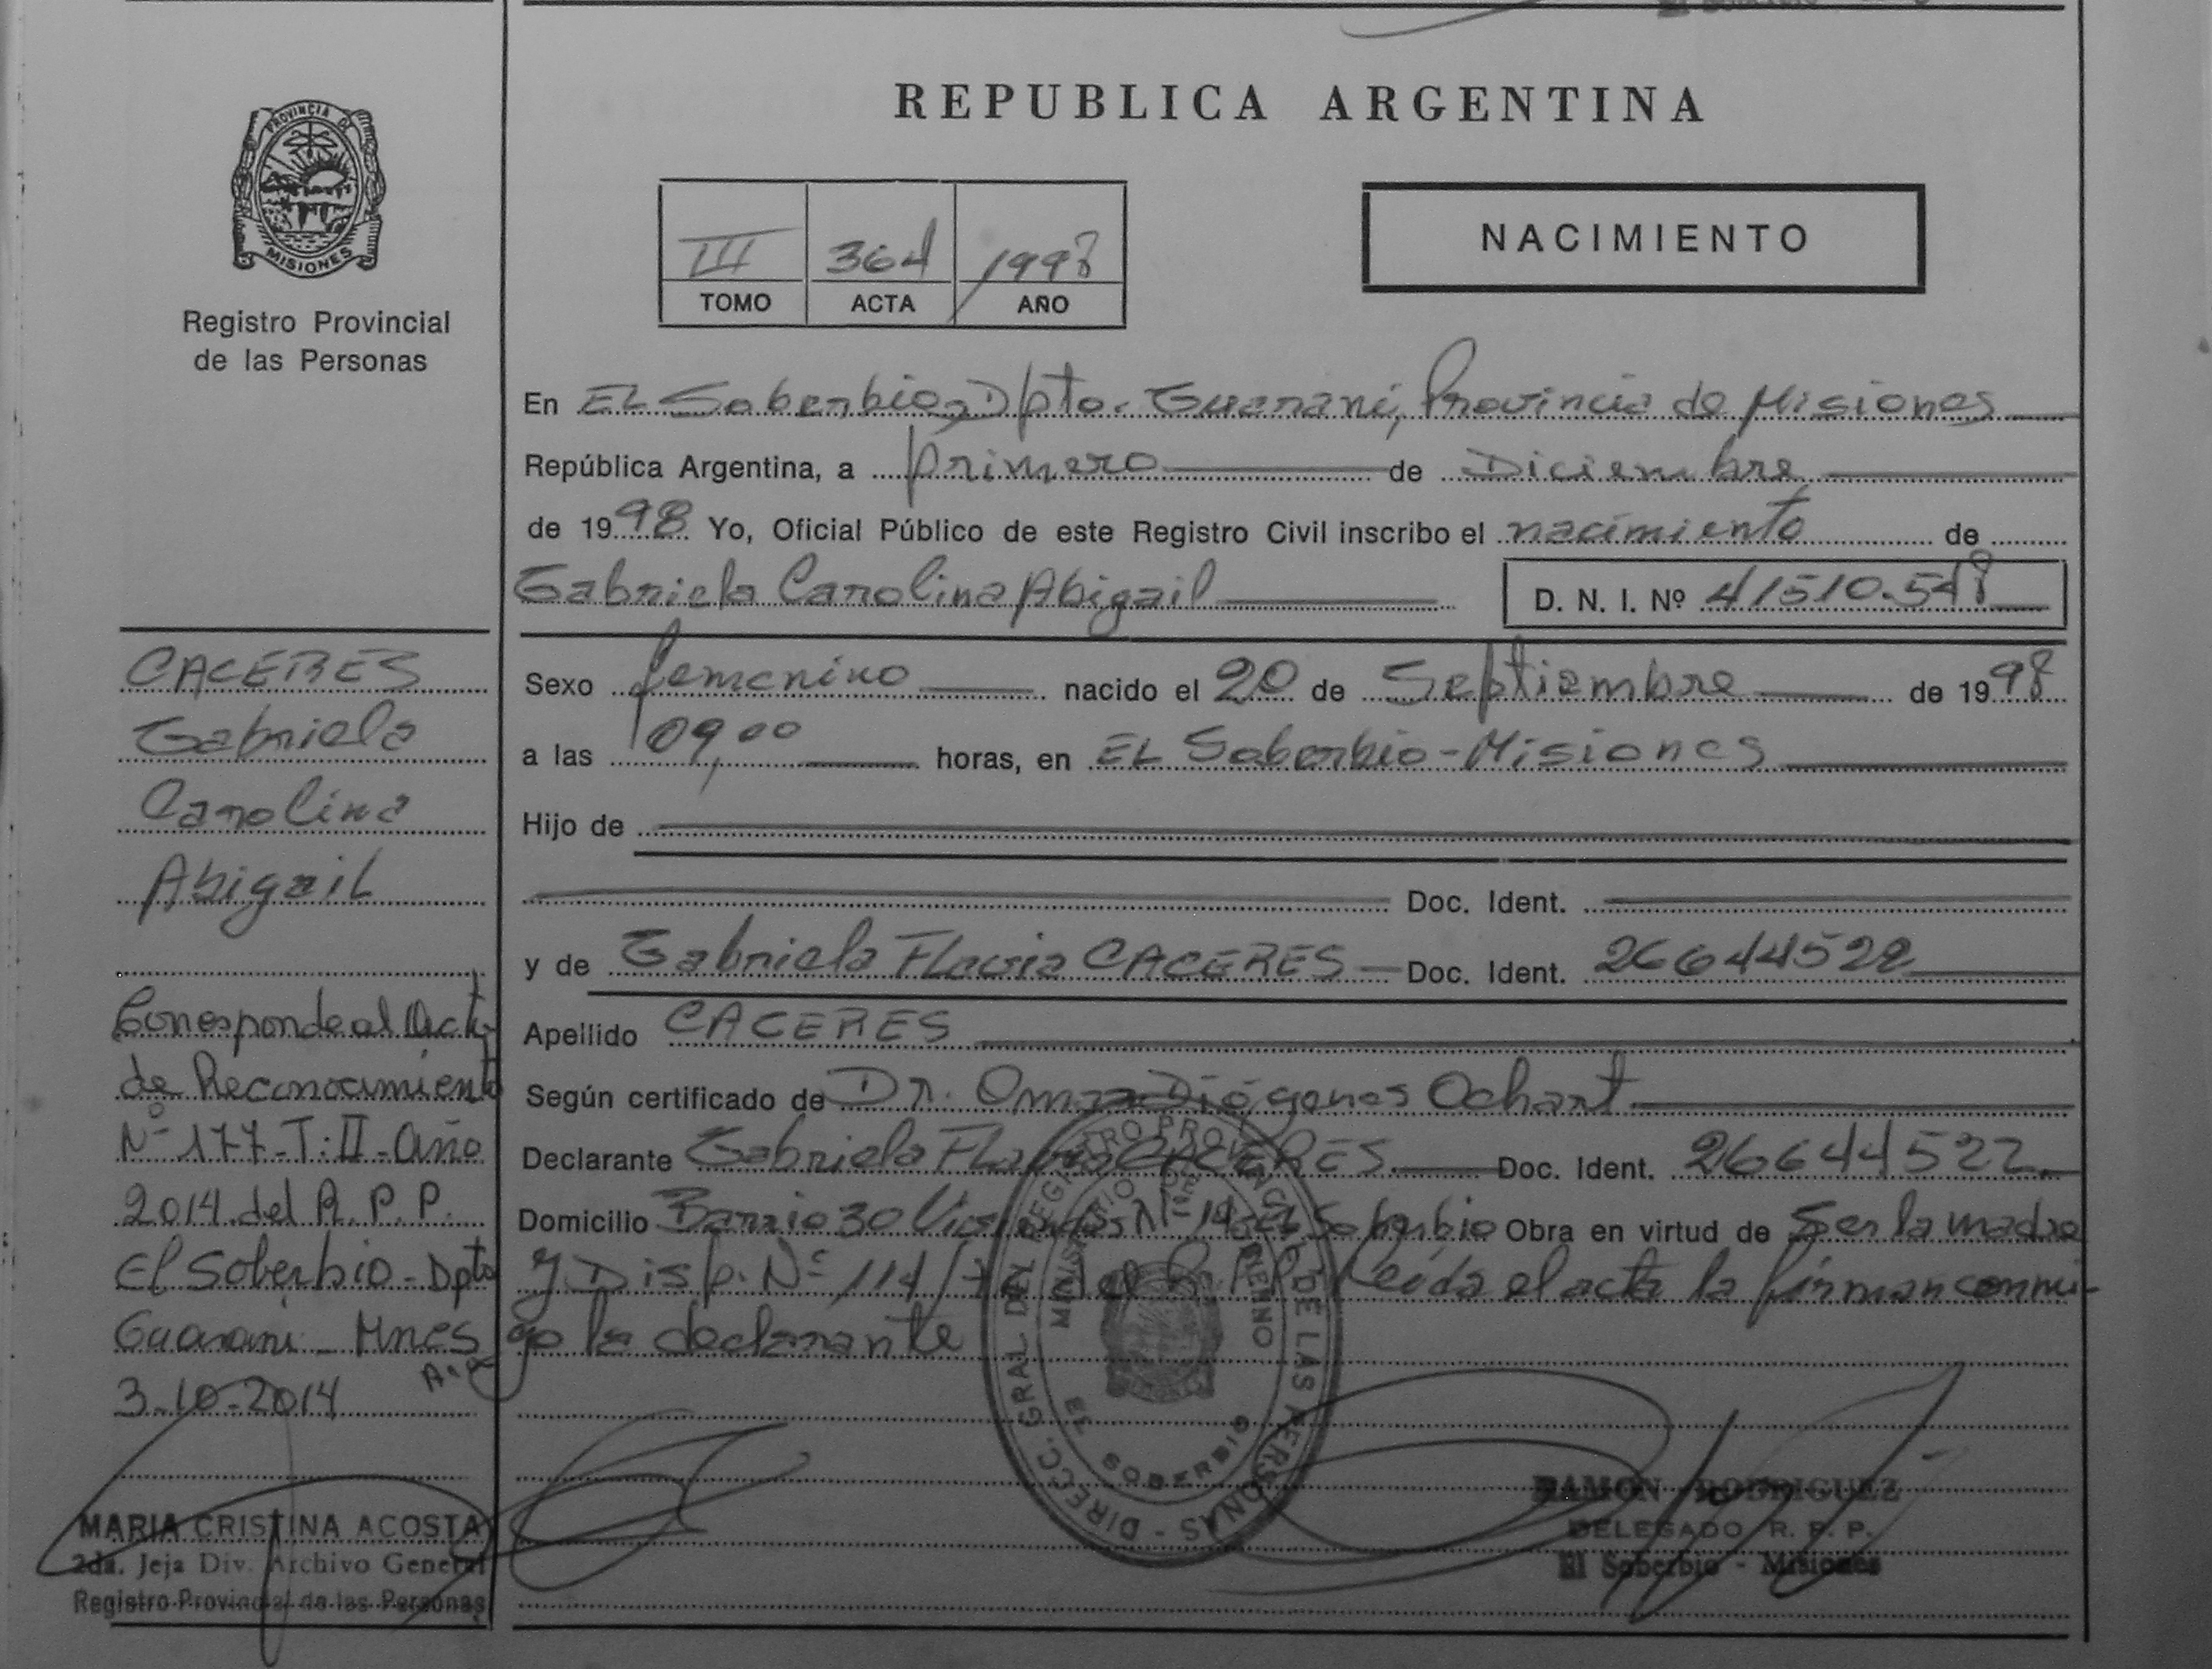 PROVINCIA DE
MISIONES
Registro Provincial
de las Personas
CACERES
Gabriela
Carolina
Abigail
Corresponde al Acta
de Reconocimiento
Nº 177-T:II-Año
2014 del R.P.P.
El Soberbio-Dpto
Guarani-Mnes
3-10-2014
MARIA CRISTINA ACOSTA
2da. Jeja Div. Archivo General
Registro Provincial de las Personas
REPUBLICA ARGENTINA
III 364 1998
TOMO ACTA AÑO
NACIMIENTO
En EL Soberbio, Dpto. Guarani, Provincia de Misiones
República Argentina, a primero de Diciembre
de 1998 Yo, Oficial Público de este Registro Civil inscribo el nacimiento de
Gabriela Carolina Abigail D. N. I. Nº 41510.548
Sexo femenino nacido el 20 de Septiembre de 1998
a las 09,00 horas, en EL Soberbio-Misiones
Hijo de
Doc. Ident.
y de Gabriela Flavia CACERES Doc. Ident. 26644522
Apellido CACERES
Según certificado de Dr. Omar Diógenes Ochart
Declarante Gabriela Flavia CACERES Doc. Ident. 26644522
Domicilio Barrio 30 Viviendas Nº 14 El Soberbio Obra en virtud de Ser la madre
y Disp. Nº 114/ del R.P.P. Leida el acta la firman conmi-
go la declarante
DIRECC. GRAL DEL REGISTRO PROVINCIAL DE LAS PERSONAS
MINISTERIO DE GOBIERNO
EL SOBERBIO
RAMON RODRIGUEZ
DELEGADO R. P. P.
El Soberbio - Misiones